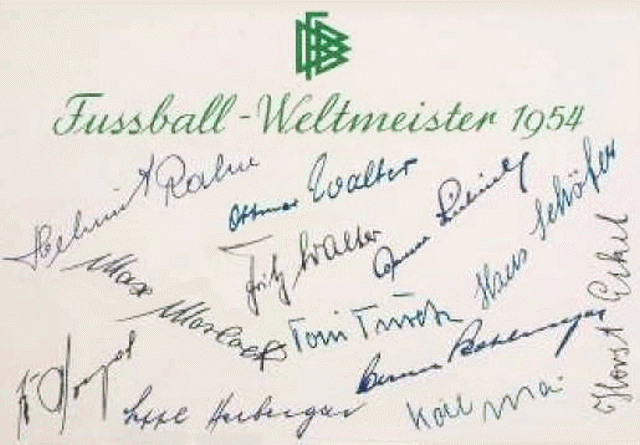 DFB
Fussball-Weltmeister 1954
Helmut Rahn
Ottmar Walter
Fritz Walter
Hans Schäfer
Max Morlock
Toni Turek
Horst Eckel
Sepp Herberger
Karl Mai